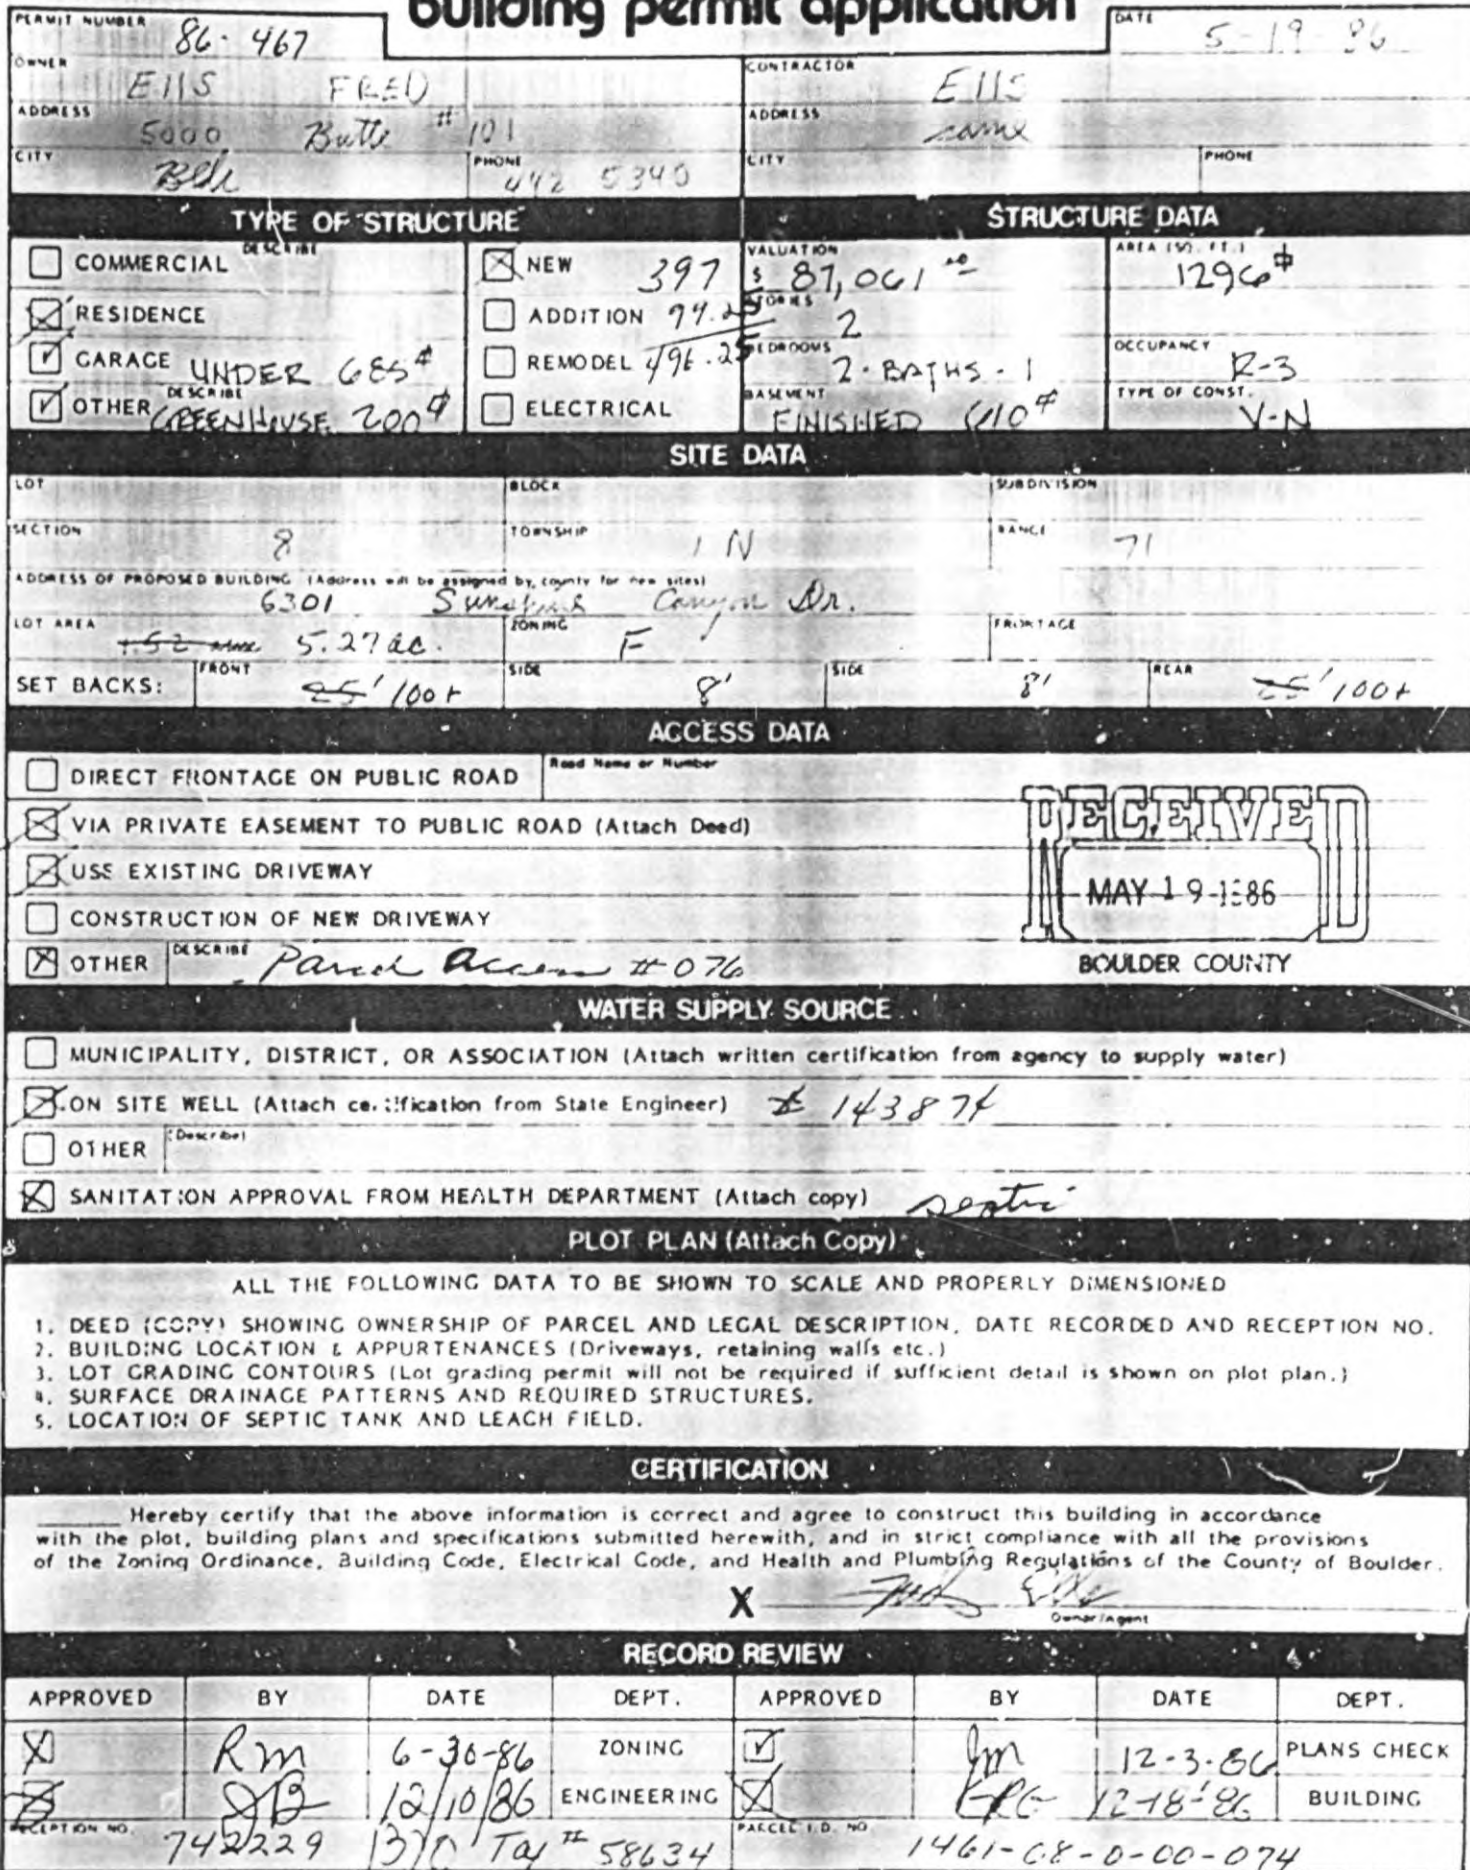 building permit application
PERMIT NUMBER 86-467
DATE 5-19-86
OWNER Ells FRED
CONTRACTOR Ells
ADDRESS 5000 Butte # 101
ADDRESS same
CITY Bldr PHONE 442 5340
CITY PHONE
TYPE OF STRUCTURE
STRUCTURE DATA
COMMERCIAL DESCRIBE
NEW 397
VALUATION $ 87,061
AREA (SQ. FT.) 1296
RESIDENCE
ADDITION 99.25
STORIES 2
GARAGE UNDER 685
REMODEL 496.25
BEDROOMS 2 - BATHS - 1
OCCUPANCY R-3
OTHER DESCRIBE GREENHOUSE 200
ELECTRICAL
BASEMENT FINISHED 610
TYPE OF CONST. V-N
SITE DATA
LOT BLOCK SUBDIVISION
SECTION 8 TOWNSHIP 1 N RANGE 71
ADDRESS OF PROPOSED BUILDING (Address will be assigned by county for new sites)
6301 Sunshine Canyon Dr.
LOT AREA 5.27 ac. ZONING F FRONTAGE
SET BACKS: FRONT 25' 100+ SIDE 8' SIDE 8' REAR 25' 100+
ACCESS DATA
DIRECT FRONTAGE ON PUBLIC ROAD Road Name or Number
VIA PRIVATE EASEMENT TO PUBLIC ROAD (Attach Deed)
USE EXISTING DRIVEWAY
CONSTRUCTION OF NEW DRIVEWAY
OTHER DESCRIBE Parcel Access # 076
RECEIVED
MAY 19 1986
BOULDER COUNTY
WATER SUPPLY SOURCE
MUNICIPALITY, DISTRICT, OR ASSOCIATION (Attach written certification from agency to supply water)
ON SITE WELL (Attach certification from State Engineer) # 143874
OTHER (Describe)
SANITATION APPROVAL FROM HEALTH DEPARTMENT (Attach copy) septic
PLOT PLAN (Attach Copy)
ALL THE FOLLOWING DATA TO BE SHOWN TO SCALE AND PROPERLY DIMENSIONED
1. DEED (COPY) SHOWING OWNERSHIP OF PARCEL AND LEGAL DESCRIPTION, DATE RECORDED AND RECEPTION NO.
2. BUILDING LOCATION & APPURTENANCES (Driveways, retaining walls etc.)
3. LOT GRADING CONTOURS (Lot grading permit will not be required if sufficient detail is shown on plot plan.)
4. SURFACE DRAINAGE PATTERNS AND REQUIRED STRUCTURES.
5. LOCATION OF SEPTIC TANK AND LEACH FIELD.
CERTIFICATION
Hereby certify that the above information is correct and agree to construct this building in accordance
with the plot, building plans and specifications submitted herewith, and in strict compliance with all the provisions
of the Zoning Ordinance, Building Code, Electrical Code, and Health and Plumbing Regulations of the County of Boulder.
X
Owner/Agent
RECORD REVIEW
APPROVED BY DATE DEPT. APPROVED BY DATE DEPT.
Rm 6-30-86 ZONING Jm 12-3-86 PLANS CHECK
JB 12/10/86 ENGINEERING 12-18-86 BUILDING
RECEPTION NO. 742229 1370 Tax # 58634 PARCEL I.D. NO. 1461-08-0-00-074